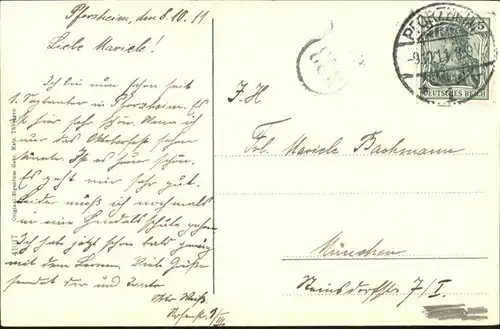 Pforzheim, den 8.10.11
Liebe Mariele!
Ich bin nun schon seit
1. September in Pforzheim. Es
ist hier sehr schön. Wenn ich
nur das Oktoberfest sehen
könnte. Ist es heuer schön.
Es geht mir sehr gut.
Leider muß ich nochmals
in eine Handelsschule gehen.
Ich hab jetzt schon bald genug
mit dem Lernen. Viele Grüße
sendet dir und Tante
Otto Weiß.
PFORZHEIM
DEUTSCHES REICH
5
Frl. Mariele Bachmann
München
Steinsdorfstr. 7/I.